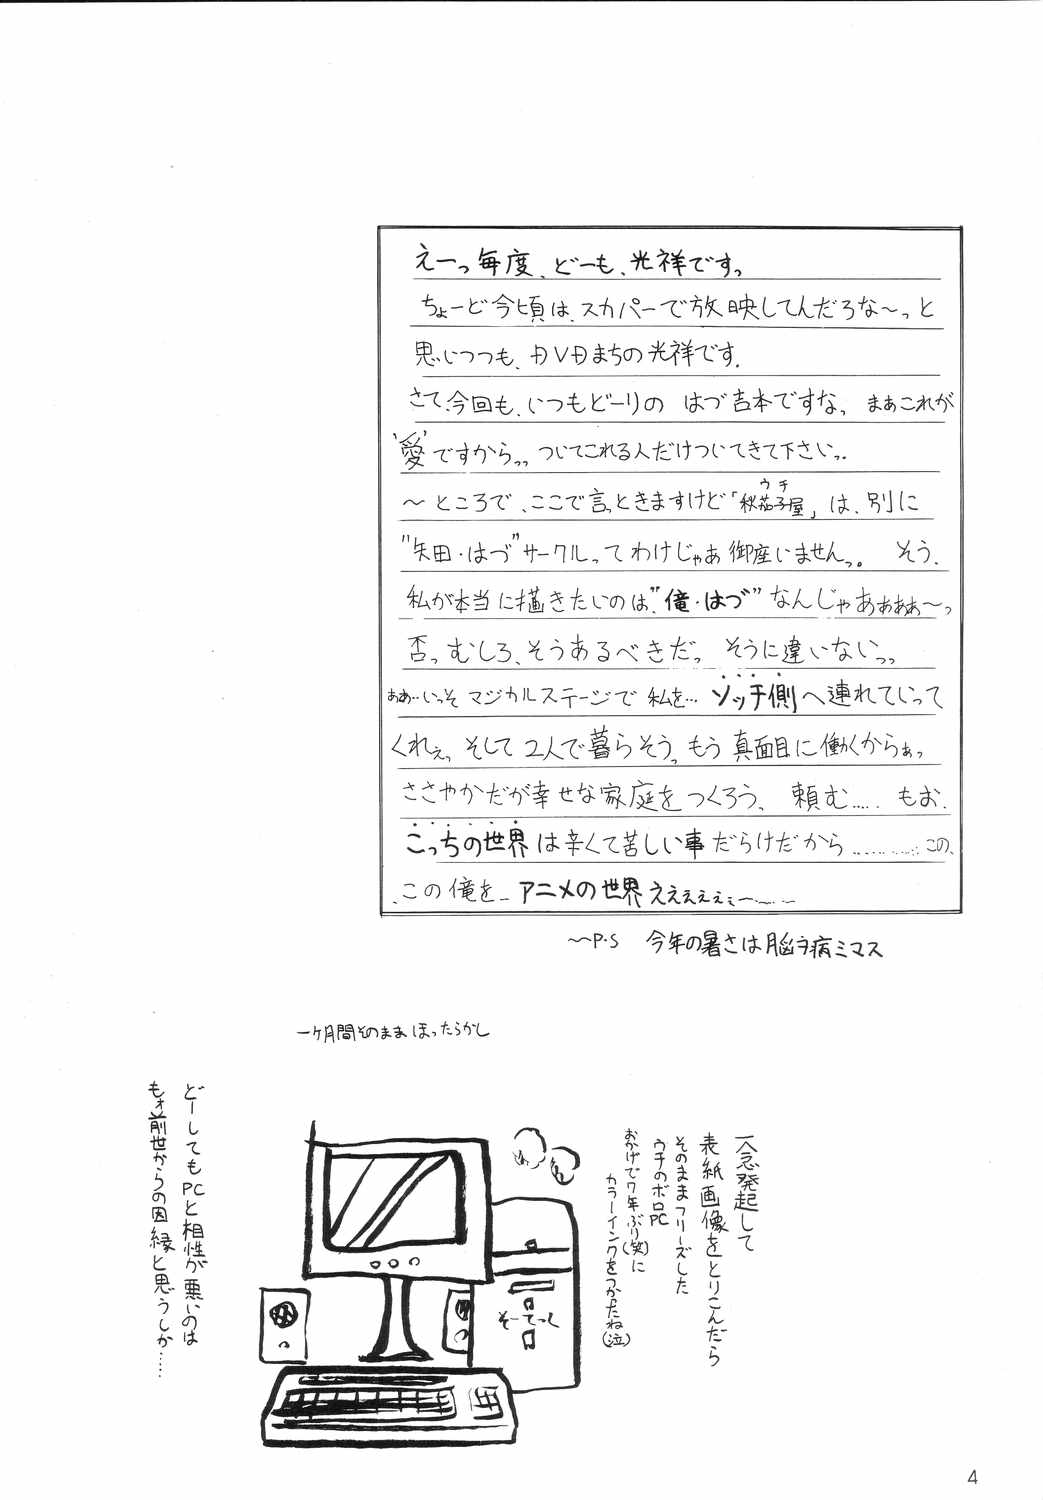 えーっ毎度、どーも、光祥ですっ
ちょーど今頃は、スカパーで放映してんだろな〜っと
思いつつも、DVDまちの光祥です。
さて、今回も、いつもどーりの はづ吉本ですなっ まぁこれが
'愛'ですからっっ ついてこれる人だけついてきて下さいっ.
〜ところで、ここで言っときますけど「秋茄子屋」は、別に
ウチ
"矢田・はづ"サークルってわけじゃあ御座いませんっ。 そう、
私が本当に描きたいのは"俺・はづ"なんじゃあぁぁぁ〜っ
否っむしろ、そうあるべきだっ そうに違いないっっ
ああ…いっそ マジカルステージで 私を… ソッチ側へ連れていって
くれぇっ そして2人で暮らそうっもう真面目に働くからぁっ
ささやかだが幸せな家庭をつくろう、 頼む…… もお、
こっちの世界は辛くて苦しい事だらけだから………… この、
この俺を_ アニメの世界ええぇぇぇぇー……
〜P.S 今年の暑さは脳ヲ病ミマス
一ヶ月間そのままほったらかし
一念発起して
表紙画像をとりこんだら
そのままフリーズした
ウチのボロPC
おかげで7年ぶり(笑)に
カラーインクをつかたね(泣)
そーてっく
どーしてもPCと相性が悪いのは
もォ前世からの因縁と思うしか……
4